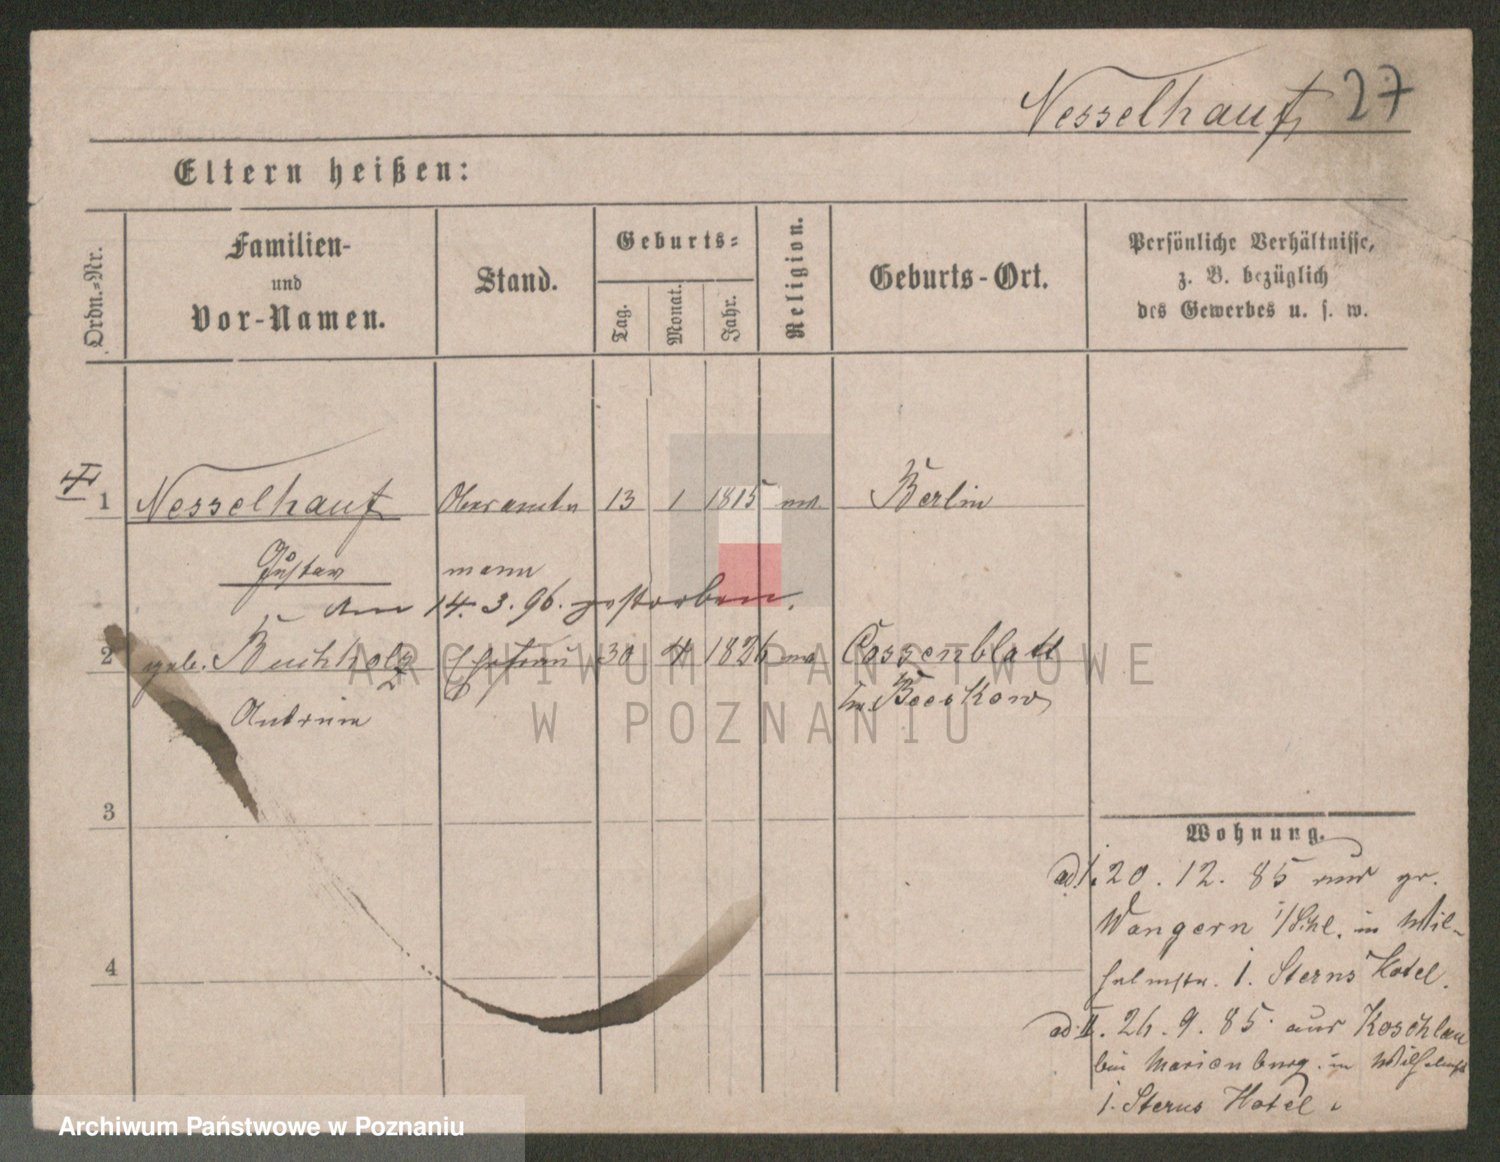 Nesselhauf 27
Eltern heißen:
Ordn.=Nr.
Familien-
und
Vor-Namen.
Stand.
Geburts=
Tag.
Monat.
Jahr.
Religion.
Geburts-Ort.
Persönliche Verhältnisse,
z. B. bezüglich
des Gewerbes u. s. w.
1 Nesselhauf Oberamts 13 1 1815 ev. Berlin
Gustav mann
Am 14. 3. 96. gestorben.
2 geb. Buchholz Ehefrau 30 4 1826 ev. Cossenblatt
Beeskow
3
Wohnung.
ad. I. 20. 12. 85 aus gr.
Wangern i/Schl. in Wil-
helmstr. 1. Sterns Hotel.
4
ad. II. 26. 9. 85 aus Koschlau
bei Marienburg in Wilhelmstr
1. Sterns Hotel.
ARCHIWUM PAŃSTWOWE
W POZNANIU
Archiwum Państwowe w Poznaniu